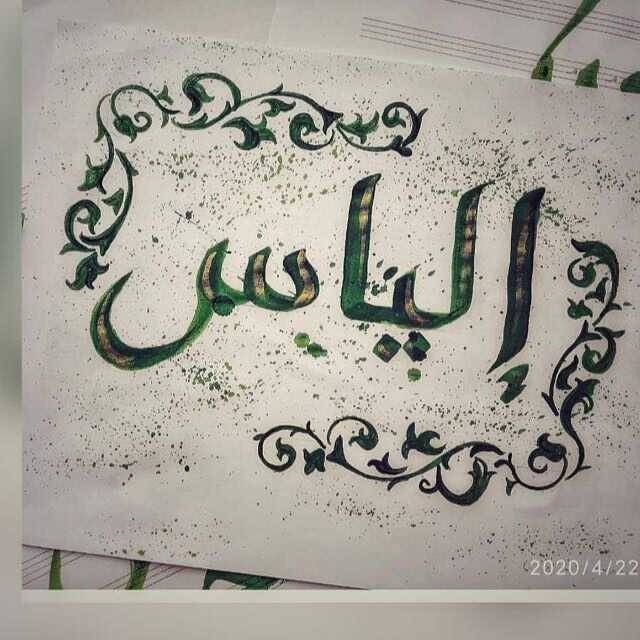 إلياس
2020/4/22